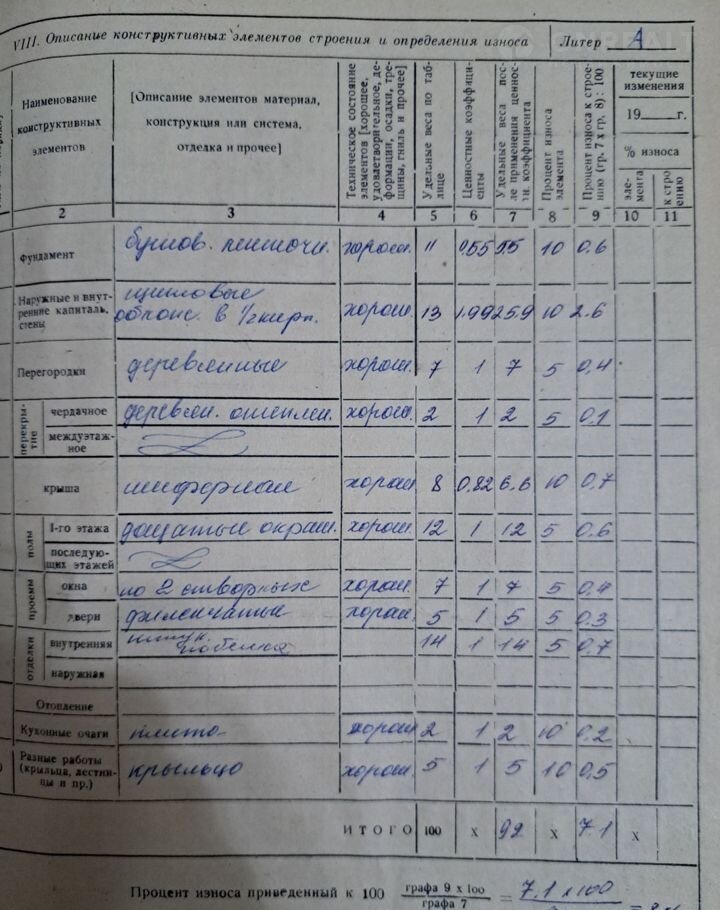 VIII. Описание конструктивных элементов строения и определения износа Литер А
Наименование конструктивных элементов
[Описание элементов материал, конструкция или система, отделка и прочее]
Техническое состояние элементов [хорошее, удовлетворительное, деформации, осадки, трещины, гниль и прочее]
Удельные веса по таблице
Ценностные коэффициенты
Удельные веса после применения ценностн. коэффициента
Процент износа элемента
Процент износа к строению (гр. 7 х гр. 8) : 100
текущие изменения
19 г.
% износа
элемента
к строению
2 3 4 5 6 7 8 9 10 11
Фундамент бутов. ленточн. хорош. 11 0,55 5.5 10 0.6
Наружные и внутренние капиталь. стены щитовые облож. в 1/2 кирп. хорош. 13 1.99 25.9 10 2.6
Перегородки деревянные хорош. 7 1 7 5 0,4
перекрытие
чердачное деревян. отеплен. хорош. 2 1 2 5 0.1
междуэтажное
крыша шиферная хорош 8 0,82 6.6 10 0,7
полы
1-го этажа дощатые окраш. хорош. 12 1 12 5 0.6
последующих этажей
проемы
окна по 2 створных хорош. 7 1 7 5 0,4
двери филенчатые хорош 5 1 5 5 0.3
отделки
внутренняя штук. побелка 14 1 14 5 0,7
наружная
Отопление
Кухонные очаги плита хорош 2 1 2 10 0.2
Разные работы (крыльца, лестницы и пр.) крыльцо хорош. 5 1 5 10 0,5
ИТОГО 100 х 92 х 7.1 х
Процент износа приведенный к 100 графа 9 х 100 / графа 7 = 7.1 х 100